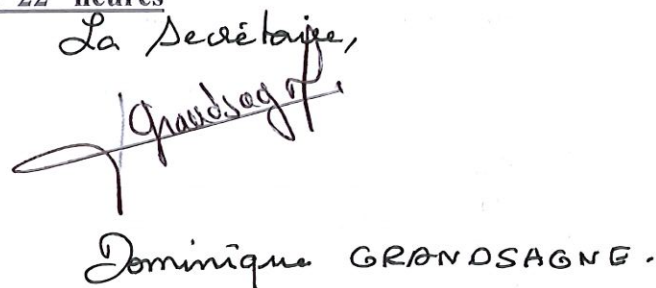 22 heures
La Secrétaire,
Grandsagne
Dominique GRANDSAGNE.